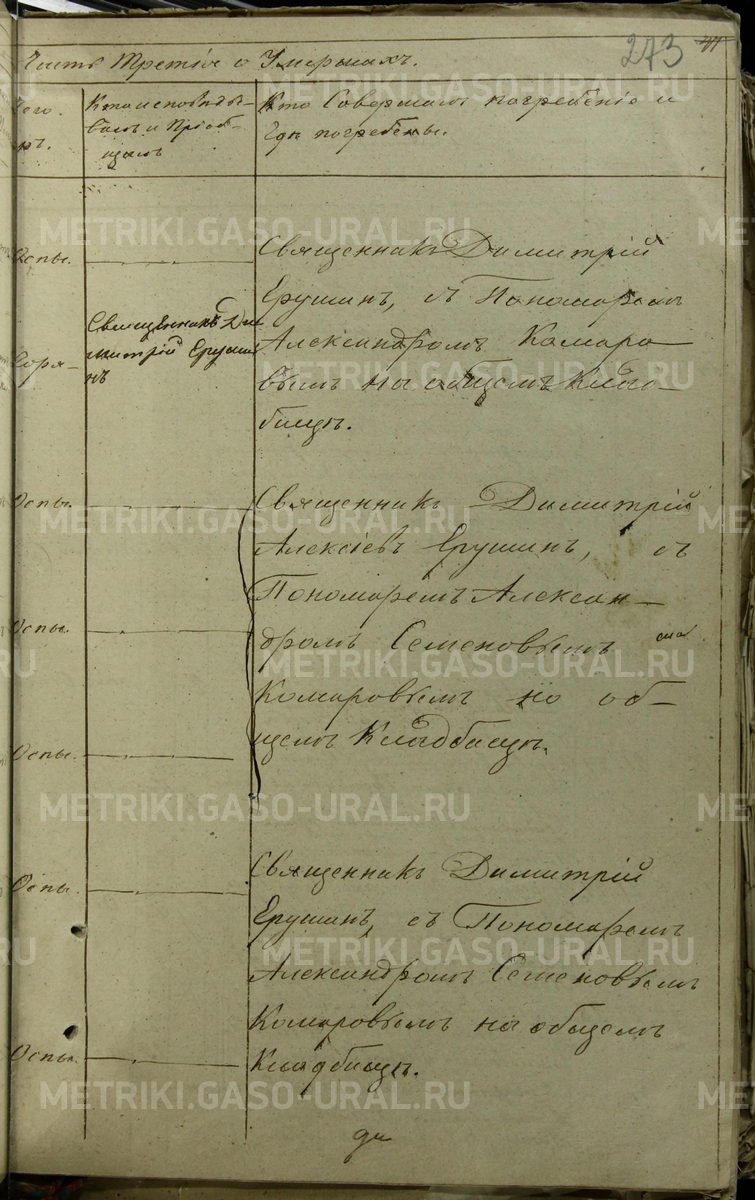 273
Часть Третія о Умершихъ.
Кто исповѣды-
валъ и Пріоб-
щалъ
Кто Совершалъ погребеніе и
гдѣ погребены.
Оспы.
Священникъ Димитрій
Ерушинъ, съ Пономаремъ
Александромъ Комаро-
вымъ на общемъ Клад-
бищѣ.
Горя-
Священникъ Ди
митрій Еруши
нъ
Оспы.
Священникъ Димитрій
Алексіевъ Ерушинъ, съ
Пономаремъ Алексан-
дромъ Семеновымъ
Комаровымъ на об-
щемъ Кладбищѣ.
Оспы.
Оспы.
Оспы.
Священникъ Димитрій
Ерушинъ, съ Пономаремъ
Александромъ Семеновымъ
Комаровымъ на общемъ
Кладбищѣ.
Оспы.
METRIKI.GASO-URAL.RU